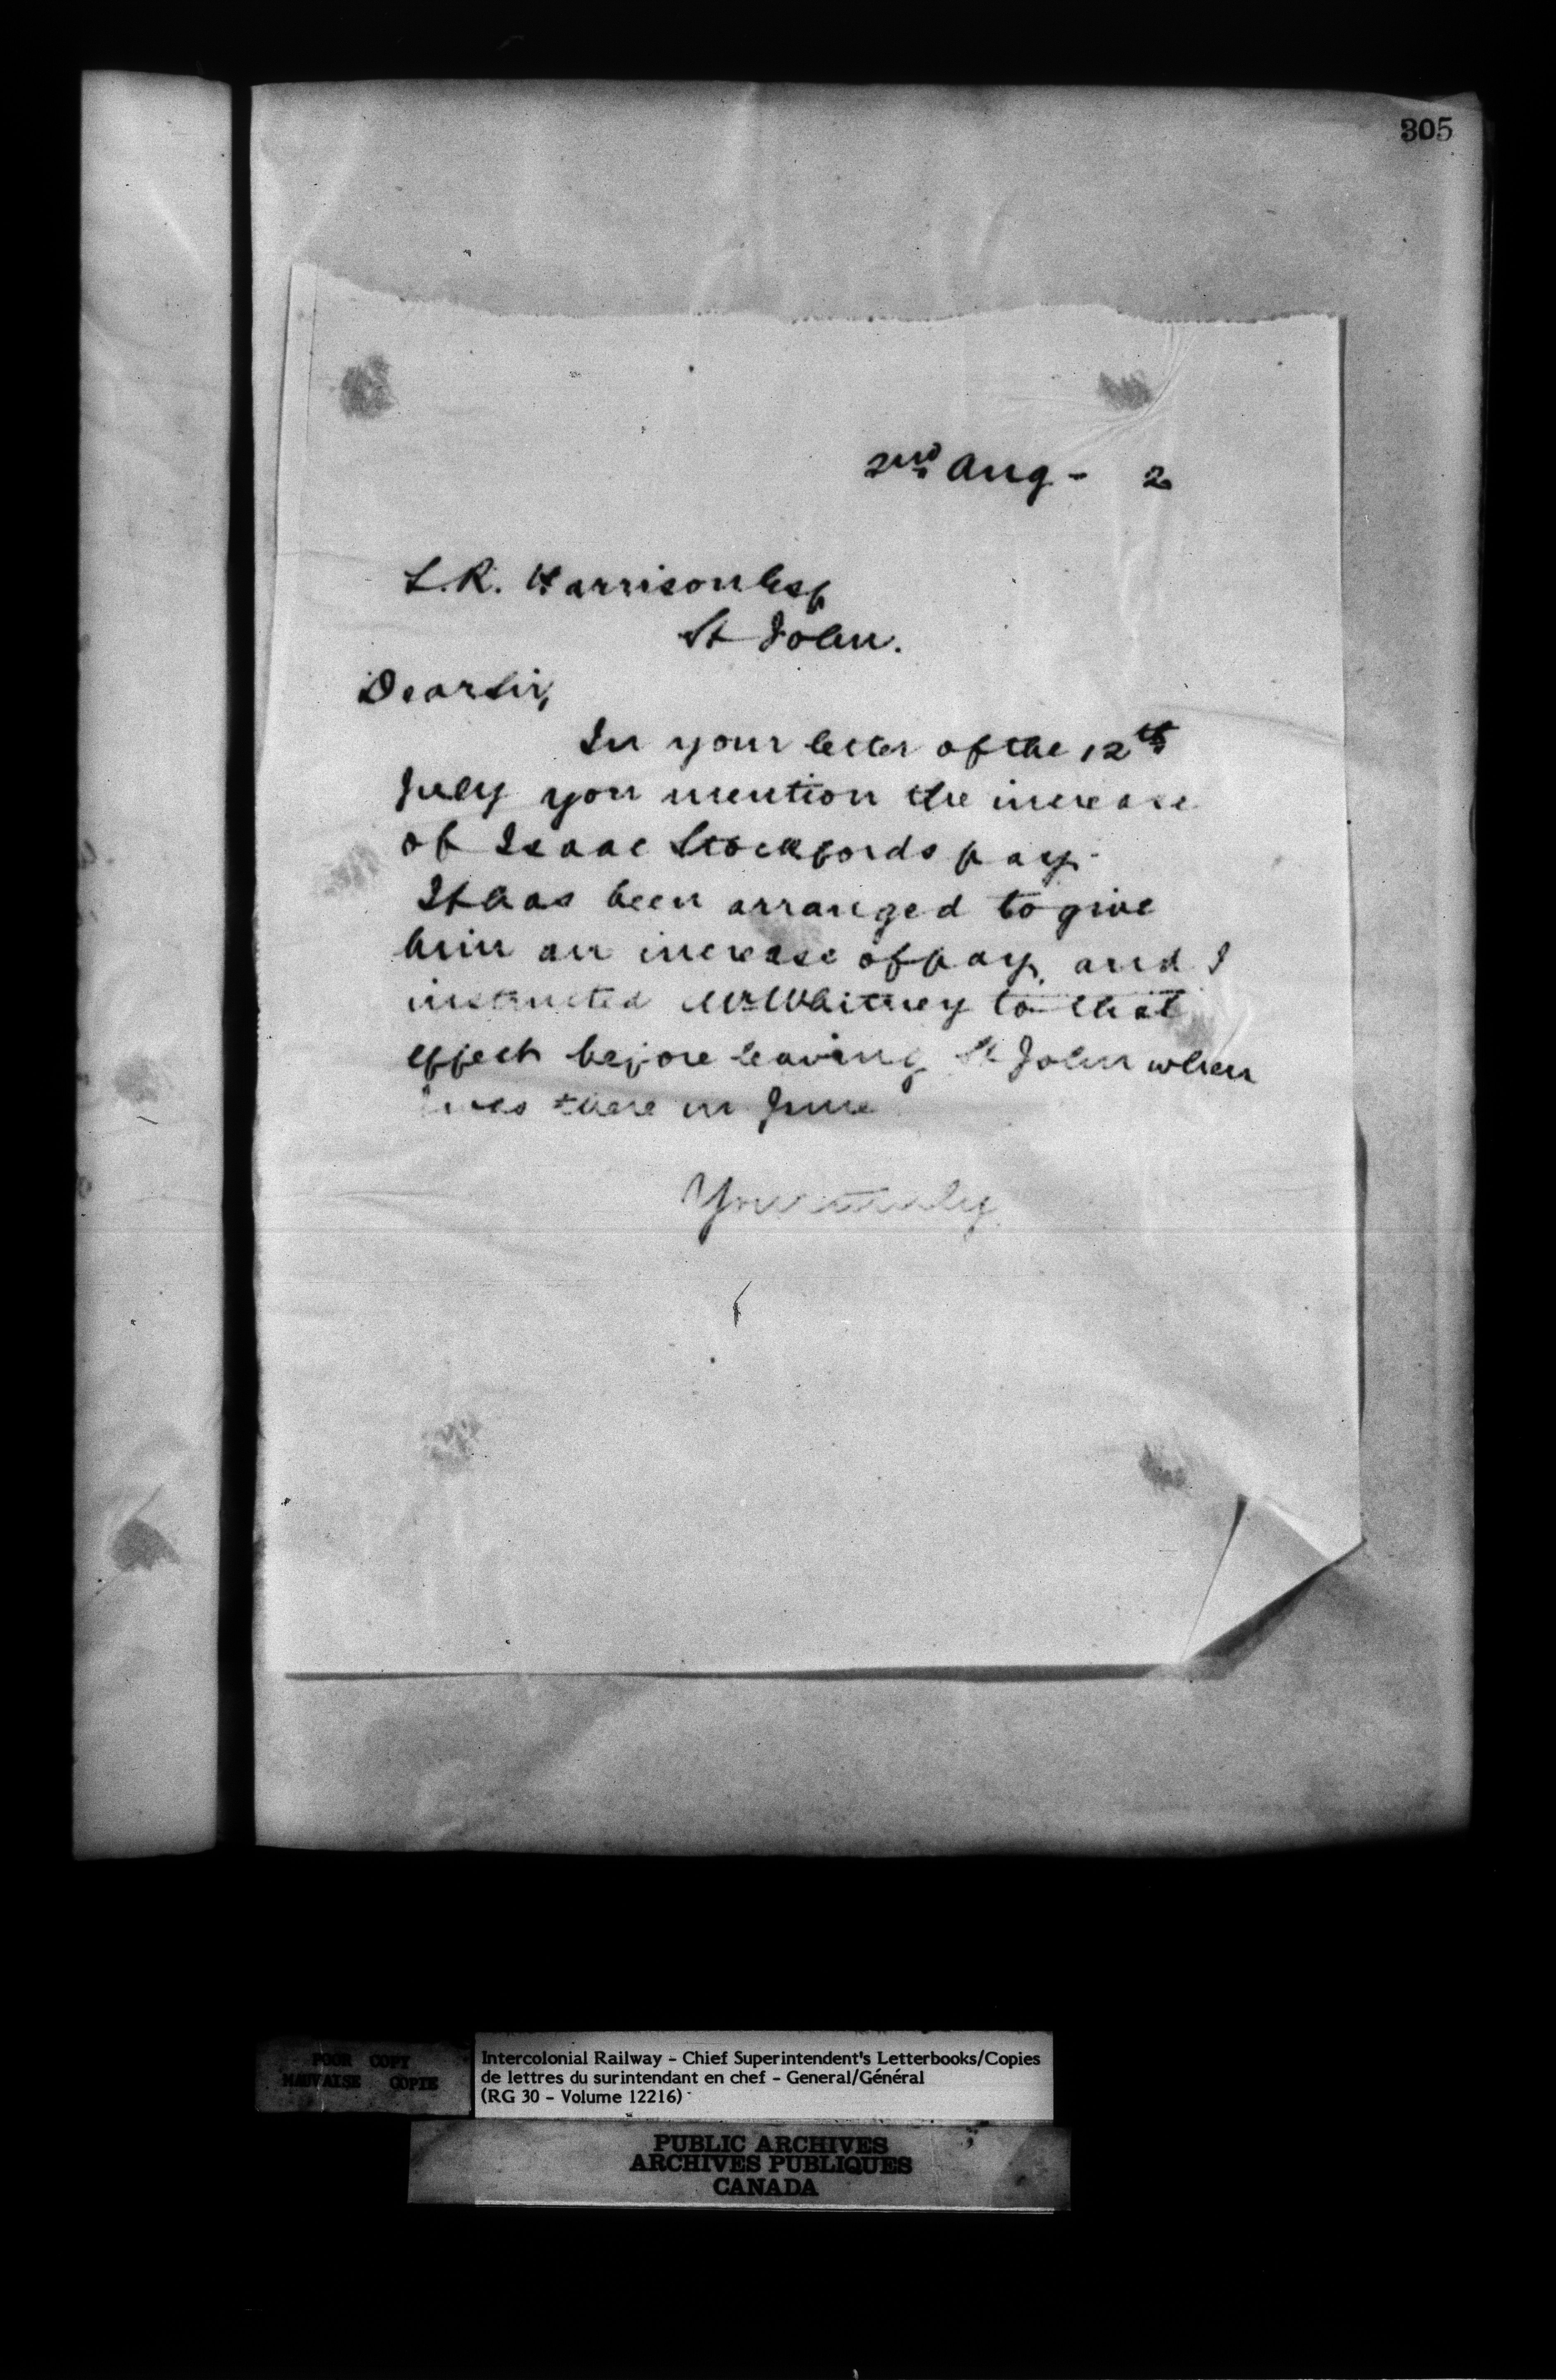 305
2nd Aug - 2
L.R. Harrison Esq
St John.
Dear Sir,
In your letter of the 12th
July you mention the increase
of Isaac Stockfords pay.
It has been arranged to give
him an increase of pay, and I
instructed Mr Whitney to that
effect before leaving St John when
I was there in June
Yours truly
POOR COPY
MAUVAISE COPIE
Intercolonial Railway - Chief Superintendent's Letterbooks/Copies
de lettres du surintendant en chef - General/Général
(RG 30 - Volume 12216)
PUBLIC ARCHIVES
ARCHIVES PUBLIQUES
CANADA